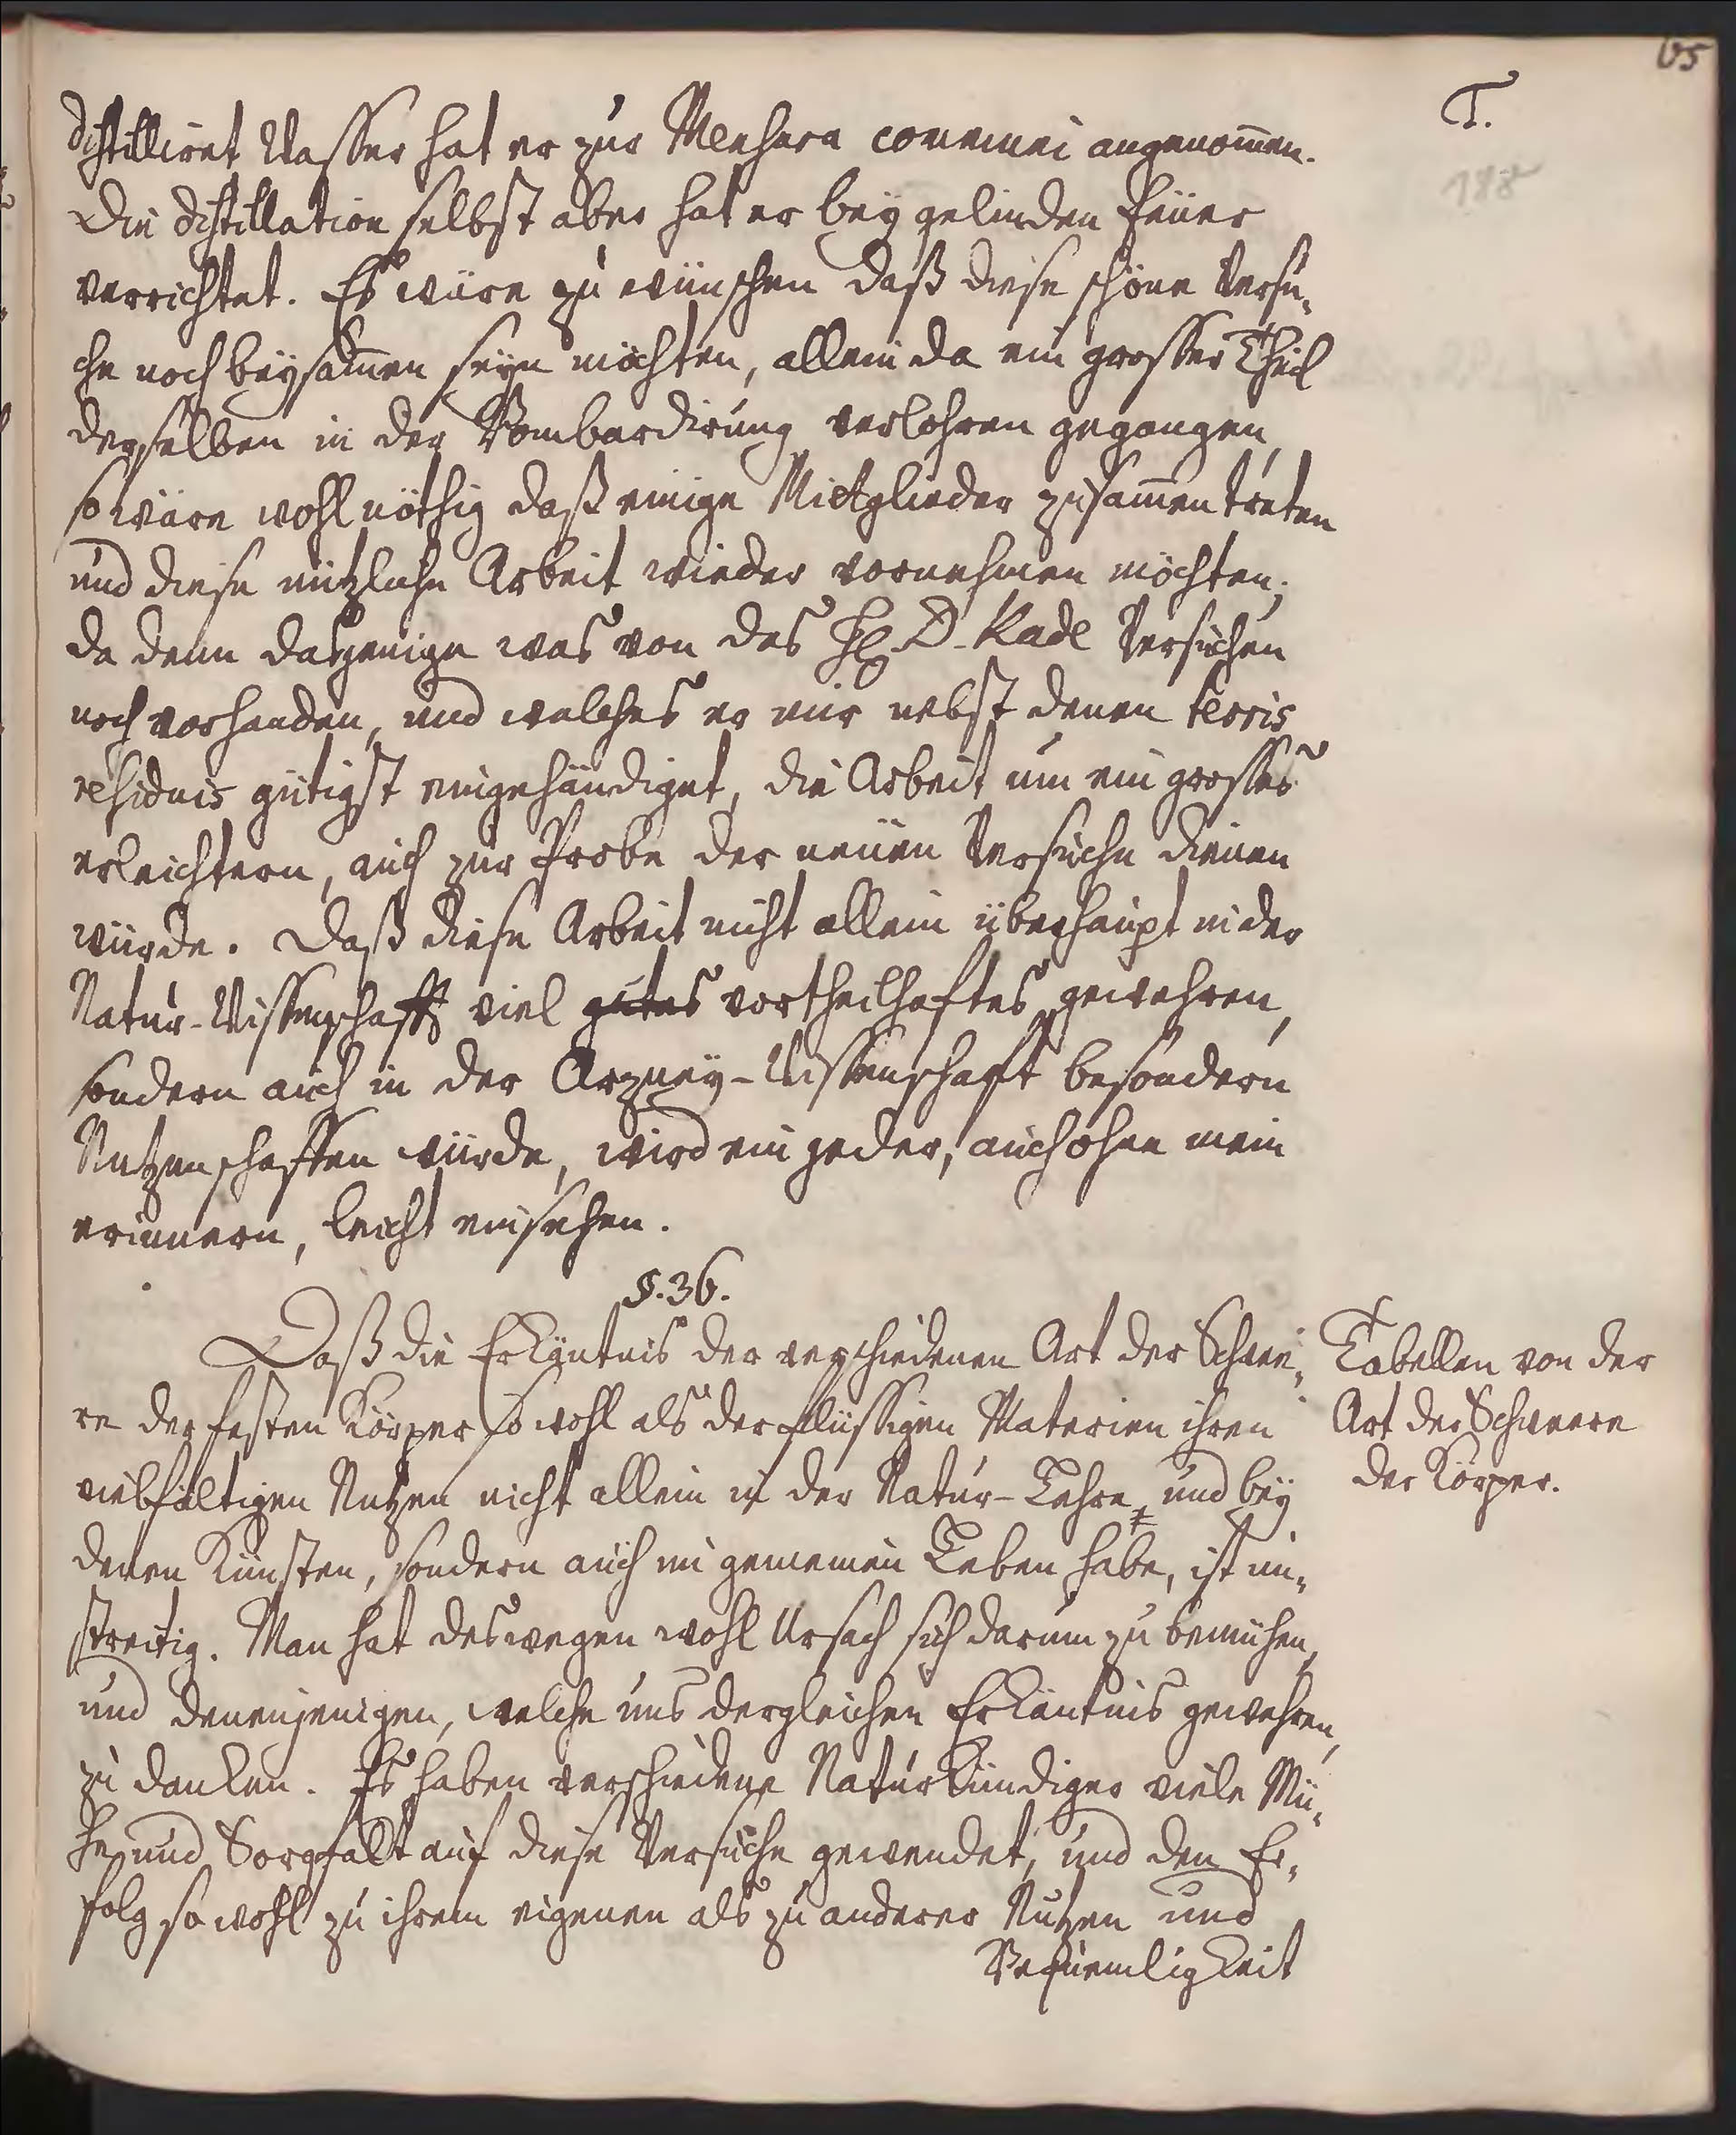 65
T.
188
distilliret Wasser hat er zur Mensura communi angenom̄en.
Die distillation selbst aber hat er bey gelinden Feüer
verrichtet. Es wäre zu wünschen daß diese schöne Versu,
che noch beysam̄en seyn möchten, allein da ein grosser Theil
derselben in der Bombardirung verlohren gegangen,
so wäre wohl nöthig daß einige Mittglieder zusam̄en treten
und diese nützliche Arbeit wieder vornehmen möchten;
da denn dasjenige was von des H D. Kade Versuchen
noch vorhanden, und welches er mir nebst denen terris
residuis gütigst eingehändiget, die Arbeit um ein grosses
erleichtern, auch zur Probe der neüen Versuche dienen
würde. Daß diese Arbeit nicht allein überhaupt in der
Natur-Wissenschafft viel gutes vortheilhaftes gewehren,
sondern auch in der Arzney-Wissenschaft besondern
Nutzen schaffen würde, wird ein jeder, auch ohne mein
erinnern, leicht einsehen.
§. 36.
Daß die Erkäntnis der verschiedenen Art der Schwe,
re der festen Körper so wohl als der flüssigen Materien ihren
vielfältigen Nutzen nicht allein in der Natur-Lehre und bey
denen Künsten, sondern auch im gemeinen Leben habe, ist un,
streitig. Man hat deswegen wohl Ursach sich darum zu bemühen,
und denenjenigen, welche uns dergleichen Erkäntnis gewehren,
zu dancken. Es haben verschiedene Naturkündiger viele Mü,
he und Sorgfalt auf diese Versuche gewendet, und den Er,
folg so wohl zu ihrem eigenen als zu anderer Nutzen und
Bequemligkeit
Tabellen von der
Art der Schweere
der Körper.